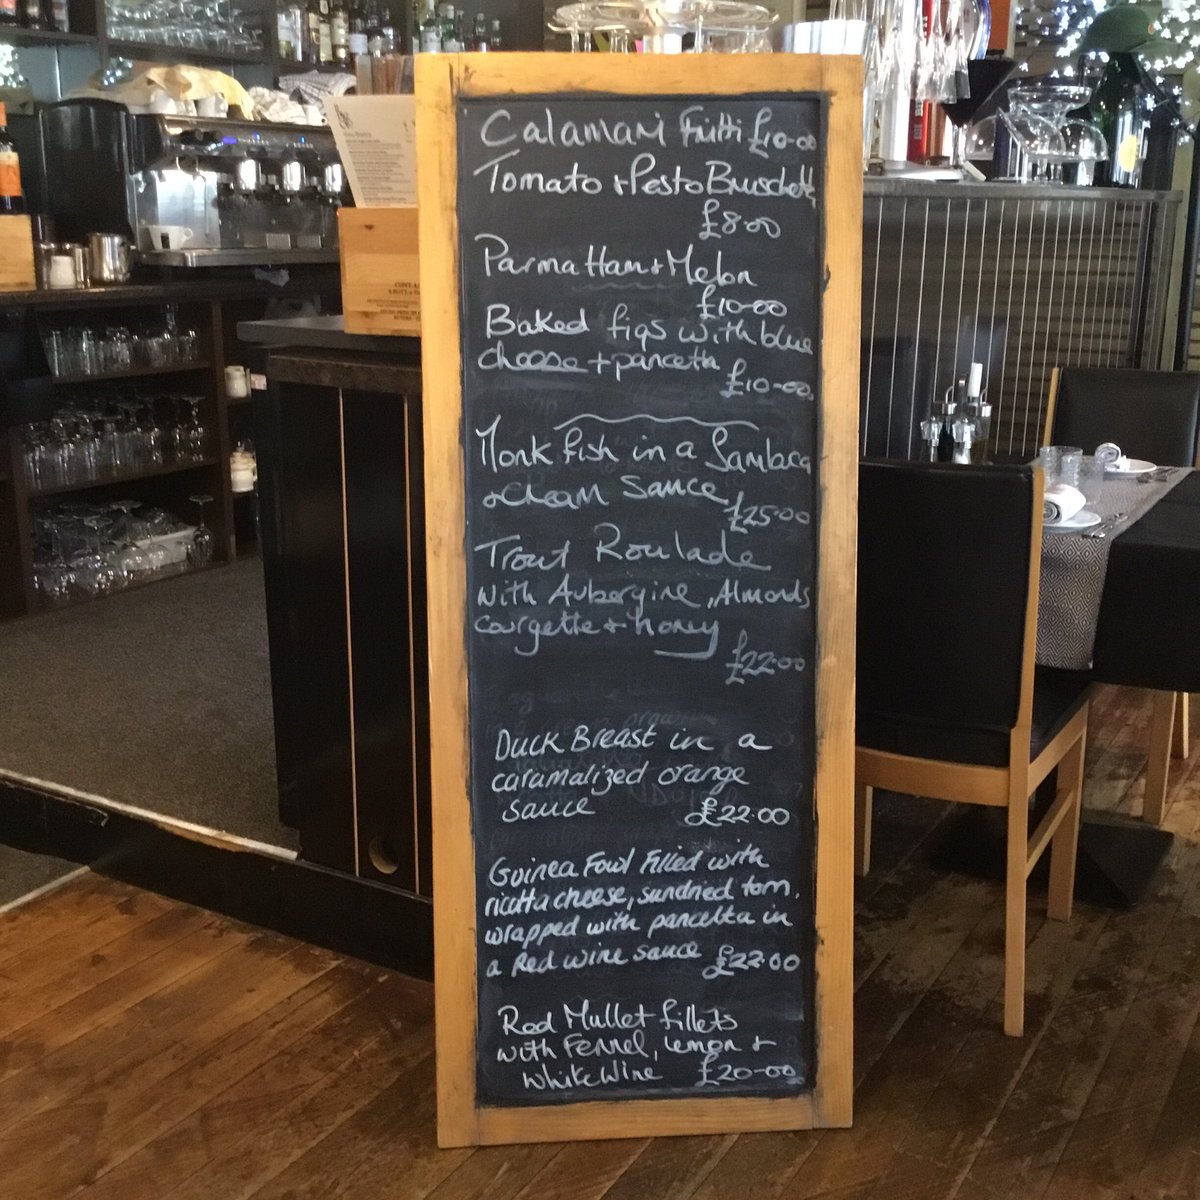 Calamari Fritti £10-00
Tomato + Pesto Bruschetta
£8.00
Parma Ham + Melon
£10-00
Baked figs with blue
cheese + pancetta
£10-00
Monk fish in a Sambaca
+ Cream Sauce
£25.00
Trout Roulade
with Aubergine, Almonds
courgette + honey
£22.00
Duck Breast in a
caramalized orange
sauce £22.00
Guinea Fowl Filled with
ricotta cheese, sundried tom.
wrapped with pancetta in
a Red wine sauce £22.00
Red Mullet fillets
with Fennel, lemon +
white wine £20-00